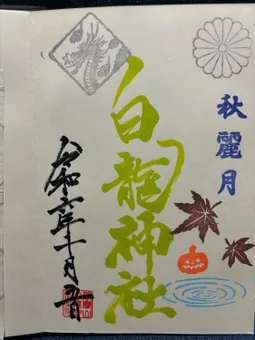 秋麗月
白龍神社
令和六年十月吉日